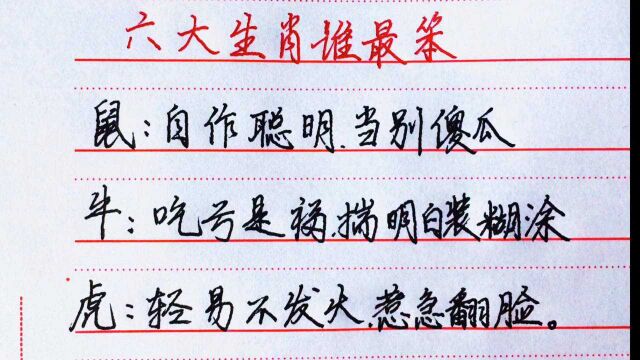 六大生肖谁最笨
鼠：自作聪明.当别傻瓜
牛：吃亏是福.揣明白装糊涂
虎：轻易不发火.惹急翻脸。